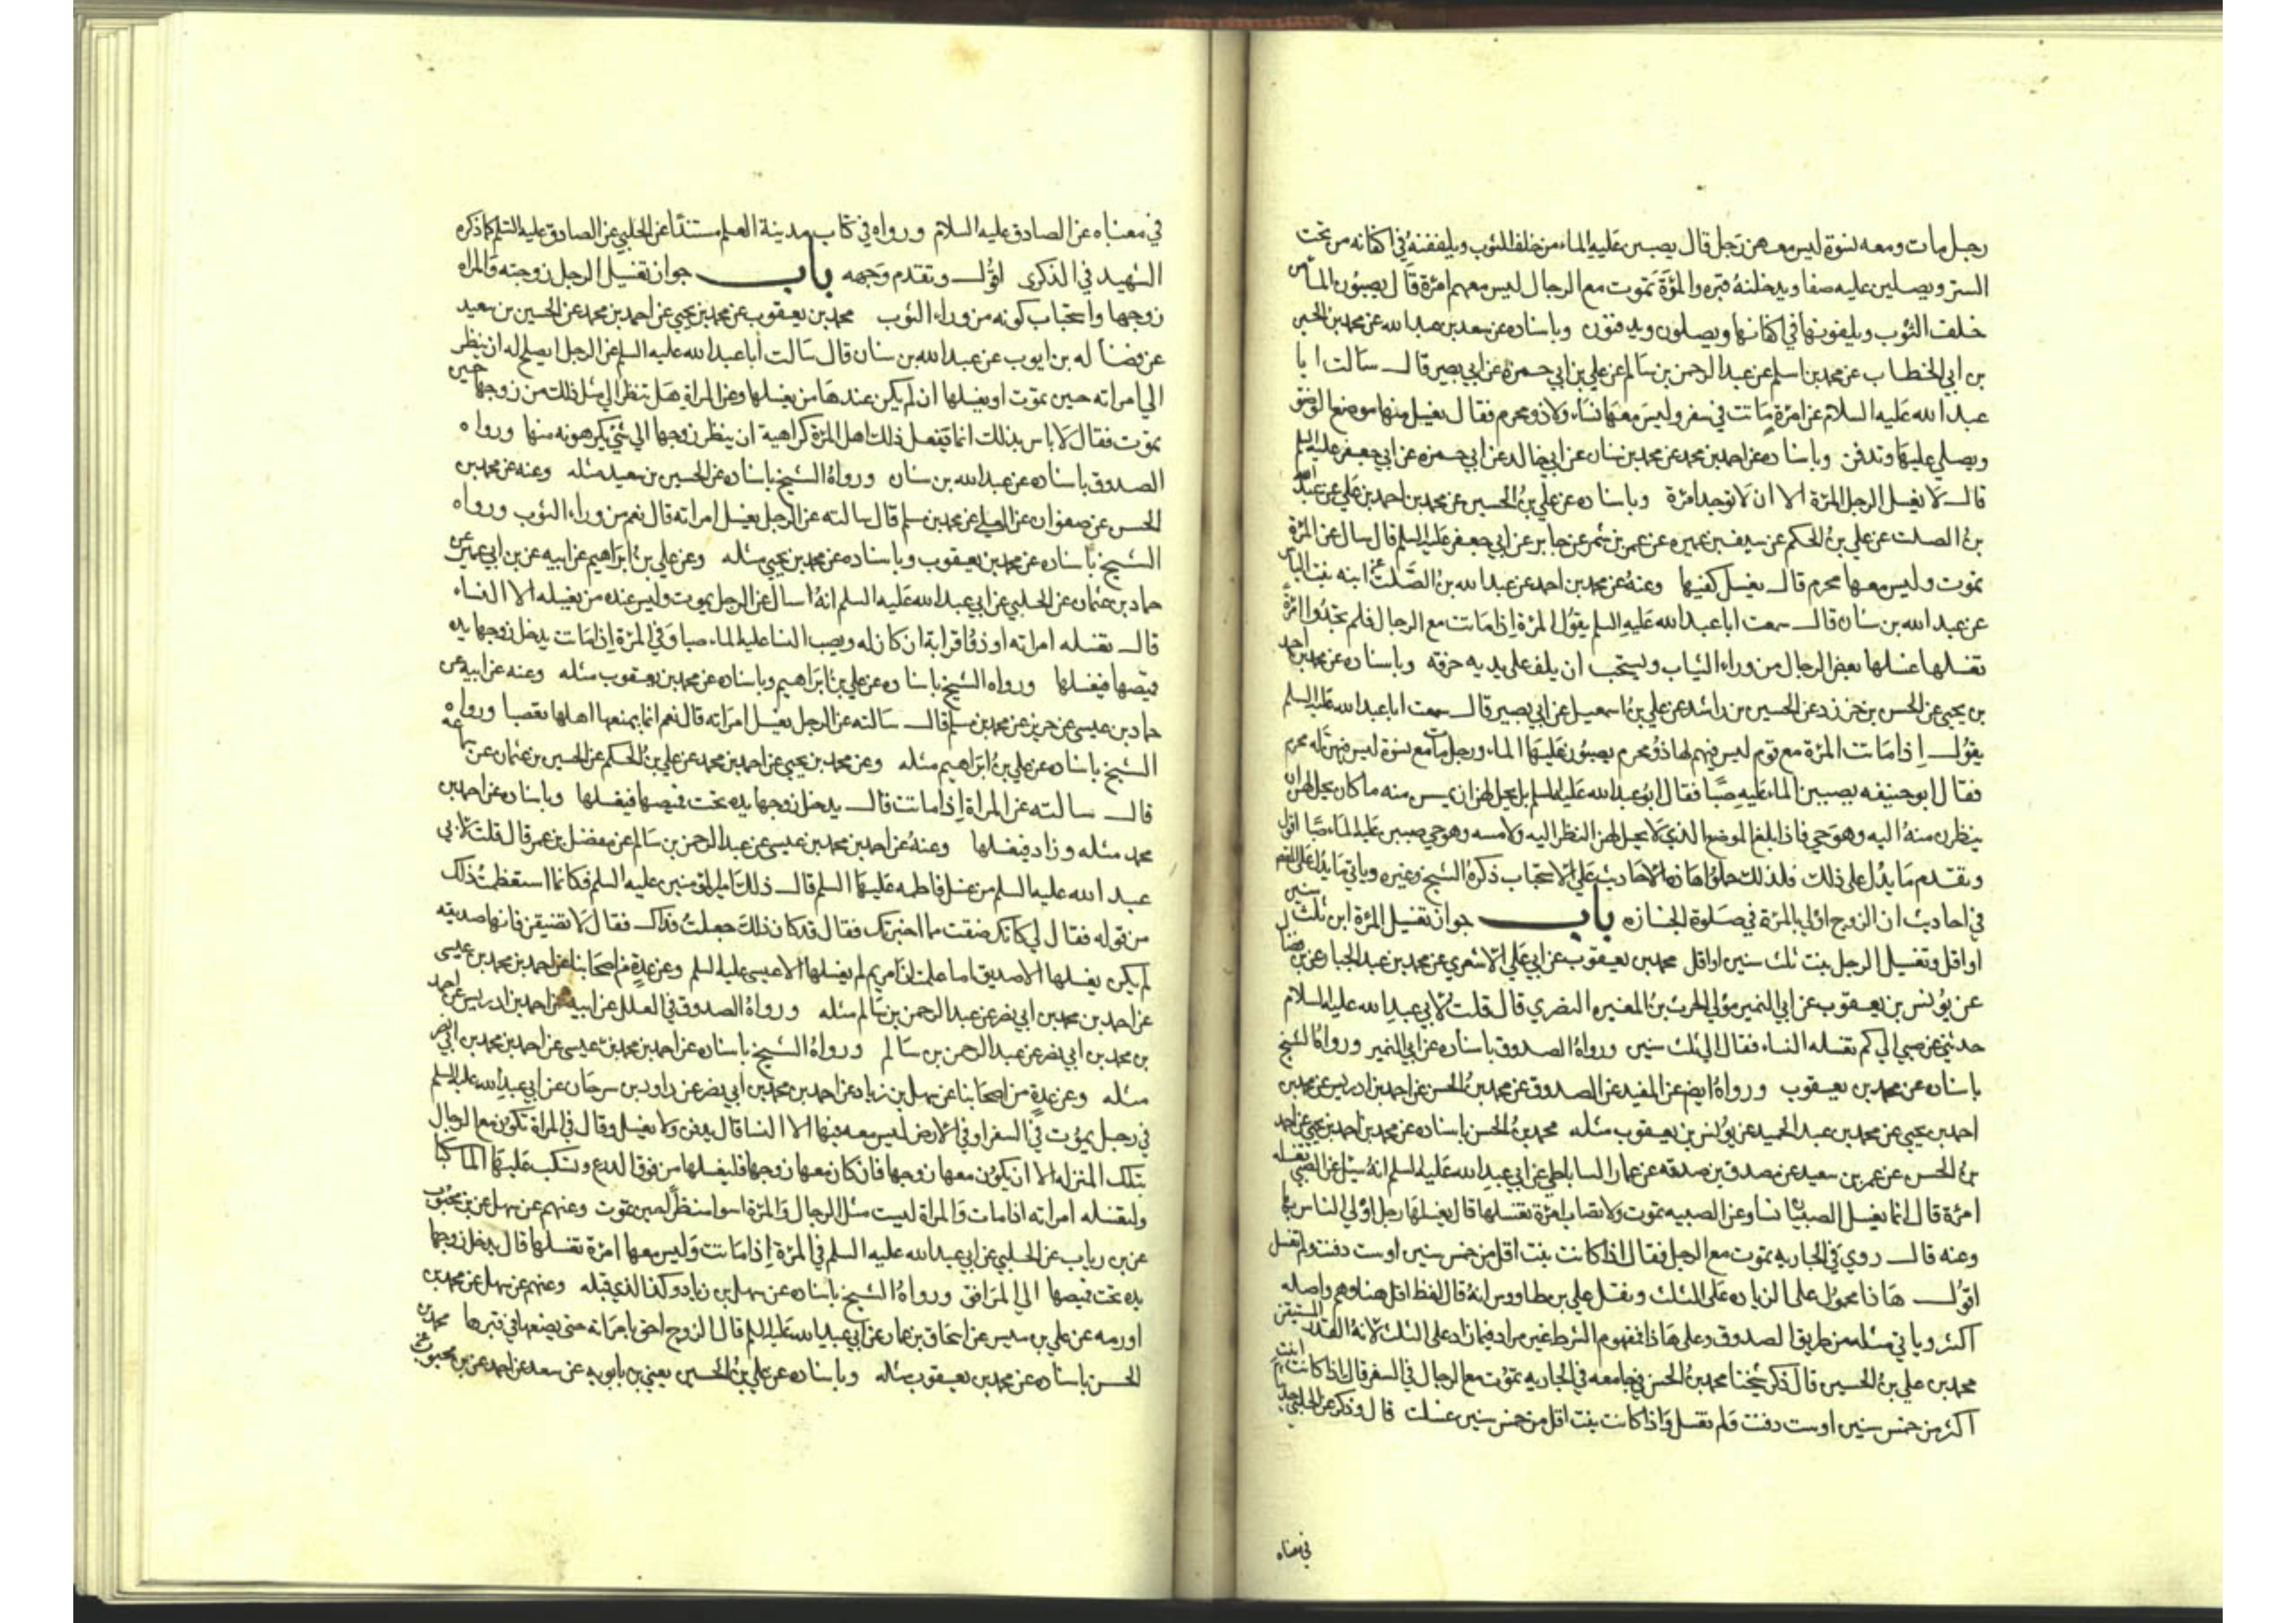 رجل مات ومعه نسوة ليس معهن رجل قال يصببن عليه الماء من خلف الثوب ويلففنه في اكفانه من تحت
الستر ويصلين عليه صفا ويدخلنه قبره والمرؤة تموت مع الرجال ليس معهم امرؤة قال يصبون الماء من
خلف الثوب ويلفونها في اكفانها ويصلون ويدفنون وباسناده عن سعد بن عبدالله عن محمد بن الحسين
بن ابي الخطاب عن محمد بن اسلم عن عبد الرحمن بن سالم عن علي بن ابي حمزة عن ابي بصير قال سالت ابا
عبد الله عليه السلام عن امرؤة ماتت في سفر وليس معها نساء ولا ذو محرم فقال يغسل منها موضع الوضوء
ويصلي عليها وتدفن وباسناده عن احمد بن محمد عن محمد بن سنان عن ابي خالد عن ابي حمزه عن ابي جعفر عليه السلم
قال لا يغسل الرجل المرؤة الا ان لا توجد امرؤة وباسناده عن علي بن الحسين عن محمد بن احمد بن علي عن عبد الله
بن الصلت عن علي بن الحكم عن سيف بن عميره عن عمرو بن شمر عن جابر عن ابي جعفر عليه السلم قال سال عن المرؤة
تموت وليس معها محرم قال يغسل كفيها وعنه عن محمد بن احمد عن عبدالله بن الصلت عن ابنه بنت الياس
عن عبد الله بن سنان قال سمعت ابا عبدالله عليه السلم يقول المرؤة اذا ماتت مع الرجال فلم يجدوا امرؤة
تغسلها غسلها بعض الرجال من وراء الثياب ويستحب ان يلف على يديه خرقه وباسناده عن محمد بن احمد
بن يحيى عن الحسن بن خرزد عن الحسين بن راشد عن علي بن اسمعيل عن ابي بصير قال سمعت ابا عبدالله عليه السلم
يقول اذا ماتت المرؤة مع قوم ليس فيهم لها ذو محرم يصبون عليها الماء ورجل مات مع نسوة ليس فيهن له محرم
فقال ابو حنيفه يصببن الماء عليه صبا فقال ابو عبدالله عليه السلم بل يحل لهن ان يمسسن منه ما كان يحل لهن ان
ينظرن منه اليه وهو حي فاذا بلغن الموضع الذي لا يحل لهن النظر اليه ولا مسه وهو حي صببن عليه الماء صبا اقول
وتقدم ما يدل على ذلك فلذلك حملوا هاذه الاحاديث على الاستحباب ذكره الشيخ وغيره وياتي ما يدل على
في احاديث ان الزوج اولى بالمرؤة في صلوة الجنازه باب جواز تغسيل المرؤة ابن ثلث سنين
او اقل وتغسيل الرجل بنت ثلث سنين او اقل محمد بن يعقوب عن ابي علي الاشعري عن محمد بن عبد الجبار عن بن فضال
عن يونس بن يعقوب عن ابي النمير مولي الحرث بن المغيره النضري قال قلت لابي عبد الله عليه السلام
حدثني عن صبي الي كم تغسله النساء فقال الي ثلث سنين ورواه الصدوق باسناده عن ابي النمير ورواه الشيخ
باسناده عن محمد بن يعقوب ورواه ايضا عن المفيد عن الصدوق عن محمد بن الحسن عن احمد بن ادريس عن محمد بن
احمد بن يحيى عن محمد بن عبد الحميد عن يونس بن يعقوب مثله محمد بن الحسن باسناده عن محمد بن احمد بن يحيى عن احمد
بن الحسن عن عمر بن سعيد عن مصدق بن صدقه عن عمار الساباطي عن ابي عبدالله عليه السلم انه سئل عن الصبي تغسله
امرؤة قال انما يغسل الصبيان النساء وعن الصبيه تموت ولا تصاب امرؤة تغسلها قال يغسلها رجل اولى الناس بها
وعنه قال روي في الجاريه تموت مع الرجل فقال اذا كانت بنت اقل من خمس سنين او ست دفنت ولم تغسل
اقول هاذا محمول على الزياده على الثلث ونقل علي بن طاووس انه قال لفظ اقل هنا وهم واصله
اكثر وياتي مثله من طريق الصدوق وعلى هاذا فمفهوم الشرط غير مراد فيما زاد على الثلث لانه القدر المتيقن
محمد بن علي بن الحسين قال ذكر شيخنا محمد بن الحسن في جامعه في الجاريه تموت مع الرجال في السفر قال اذا كانت ابنت
اكثر من خمس سنين او ست دفنت ولم تغسل واذا كانت بنت اقل من خمس سنين غسلت قال وذكر عن الحلبي حديثا
في معناه
في معناه عن الصادق عليه السلام ورواه في كتاب مدينة العلم مسندا عن الحلبي عن الصادق عليه السلم كما ذكره
الشهيد في الذكري اقول وتقدم وجهه باب جواز تغسيل الرجل زوجته والمراه
زوجها واستحباب كونه من وراء الثوب محمد بن يعقوب عن محمد بن يحيى عن احمد بن محمد عن الحسين بن سعيد
عن فضاله بن ايوب عن عبدالله بن سنان قال سالت ابا عبدالله عليه السلم عن الرجل ايصلح له ان ينظر
الي امراته حين تموت او يغسلها ان لم يكن عندها من يغسلها وعن المراة هل تنظر الي مثل ذلك من زوجها حين
يموت فقال لا باس بذلك انما يفعل ذلك اهل المرؤة كراهية ان ينظر زوجها الي شئ يكرهونه منها ورواه
الصدوق باسناده عن عبدالله بن سنان ورواه الشيخ باسناده عن الحسين بن سعيد مثله وعنه عن محمد بن
الحسن عن صفوان عن العلي عن محمد بن سلم قال سالته عن الرجل يغسل امراته قال نعم من وراء الثوب ورواه
الشيخ باسناده عن محمد بن يعقوب وباسناده عن محمد بن يحيى مثله وعن علي بن ابراهيم عن ابيه عن بن ابي عمير عن
حماد بن عثمان عن الحلبي عن ابي عبدالله عليه السلم انه سال عن الرجل يموت وليس عنده من يغسله الا النساء
قال تغسله امراته او ذو قرابة ان كان له ويصب النسا عليه الماء صبا وفي المرؤة اذا ماتت يدخل زوجها يده
قيصها فيغسلها ورواه الشيخ باسناده عن علي بن ابراهيم وباسناده عن محمد بن يعقوب مثله وعنه عن ابيه عن
حماد بن عيسى عن حريز عن محمد بن مسلم قال سالته عن الرجل يغسل امراته قال نعم انما يمنعها اهلها تعصبا ورواه
الشيخ باسناده عن علي بن ابراهيم مثله وعن محمد بن يحيى عن احمد بن محمد عن علي بن الحكم عن الحسين بن عثمان عن سماعه
قال سالته عن المراة اذا ماتت قال يدخل زوجها يده تحت قيصها فيغسلها وباسناده عن احمد بن
محمد مثله وزاد فيغسلها وعنه عن احمد بن محمد بن عيسى عن عبد الرحمن بن سالم عن مفضل بن عمر قال قلت لابي
عبد الله عليه السلم من غسل فاطمه عليها السلم قال ذلك امير المؤمنين عليه السلم فكانما استفظعت ذلك
من قوله فقال لي كانك ضقت مما اخبرتك فقال قد كان ذلك جعلت فداك فقال لا تضيقن فانها صديقه
لم يكن يغسلها الا صديق اما علمت ان مريم لم يغسلها الا عيسى عليه السلم وعن عدة من اصحابنا عن احمد بن محمد بن عيسى
عن احمد بن محمد بن ابي نصر عن عبد الرحمن بن سالم مثله ورواه الصدوق في العلل عن ابيه عن احمد بن ادريس عن احمد
بن محمد بن ابي نصر عن عبد الرحمن بن سالم ورواه الشيخ باسناده عن احمد بن محمد بن عيسى عن احمد بن محمد بن ابي نصر
مثله وعن عدة من اصحابنا عن سهل بن زياد عن احمد بن محمد بن ابي نصر عن داود بن سرحان عن ابي عبدالله عليه السلم
في رجل يموت في السفر او في الارض ليس معه فيها الا النسا قال يدفن ولا يغسل وقال في المراة تكون مع الرجال
بتلك المنزله الا ان يكون معها زوجها فان كان معها زوجها فليغسلها من فوق الدرع وتسكب عليها الما سكبا
ولتغسله امراته اذا مات والمراة ليست مثل الرجال والمرؤة اسوا منظرا حين تموت وعنهم عن سهل عن بن محبوب
عن بن رياب عن الحلبي عن ابي عبدالله عليه السلم في المرؤة اذا ماتت وليس معها امرؤة تغسلها قال يدخل زوجها
يده تحت قيصها الي المرافق ورواه الشيخ باسناده عن سهل بن زياد وكذا الذي قبله وعنهم عن سهل عن محمد بن
اورمه عن علي بن ميسر عن اسحاق بن عمار عن ابي عبدالله عليه السلم قال الزوج احق بامراته حتى يضعها في قبرها محمد بن
الحسن باسناده عن محمد بن يعقوب مثله وباسناده عن علي بن الحسين يعني بن بابويه عن سعد عن احمد عن بن محبوب عن